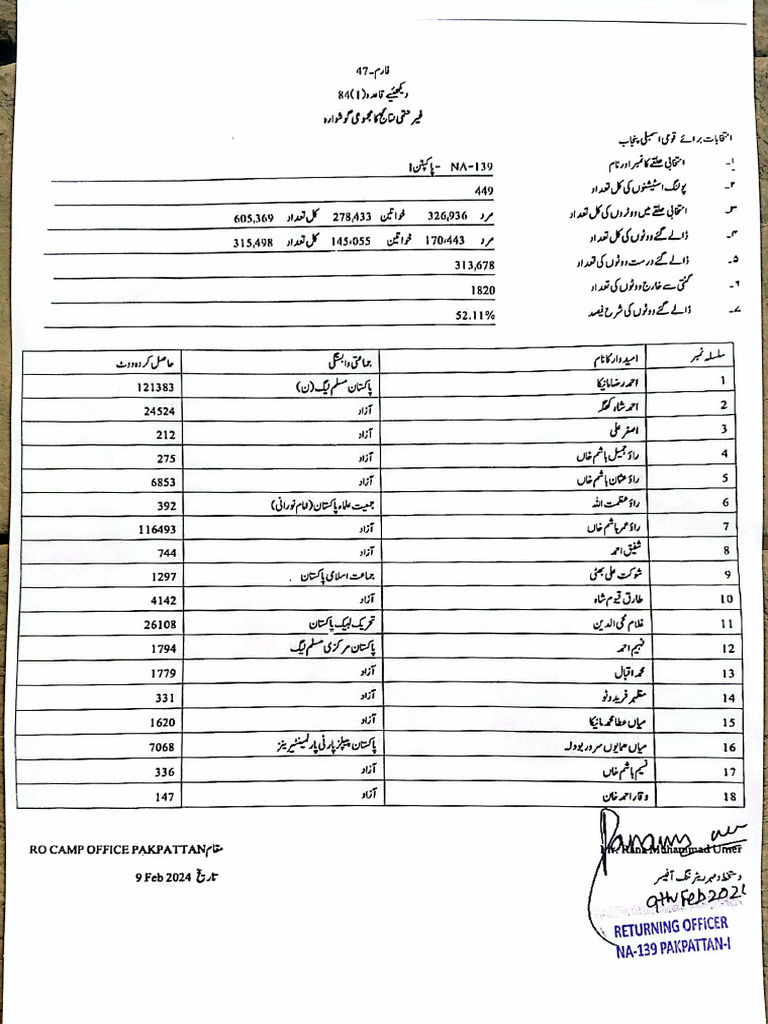 فارم-47
دیکھئیے قاعدہ (1)84
غیر حتمی نتائج کا مجموعی گوشوارہ
انتخابات برائے قومی اسمبلی پنجاب
۱- انتخابی حلقے کا نمبر اور نام NA-139 - پاکپتن I
۲- پولنگ اسٹیشنوں کی کل تعداد 449
۳- انتخابی حلقے میں ووٹروں کی کل تعداد مرد 326,936 خواتین 278,433 کل تعداد 605,369
۴- ڈالے گئے ووٹوں کی کل تعداد مرد 170,443 خواتین 145,055 کل تعداد 315,498
۵- ڈالے گئے درست ووٹوں کی تعداد 313,678
۶- گنتی سے خارج ووٹوں کی تعداد 1820
۷- ڈالے گئے ووٹوں کی شرح فیصد 52.11%
سلسلہ نمبر امیدوار کا نام جماعتی وابستگی حاصل کردہ ووٹ
1 احمد رضا مانیکا پاکستان مسلم لیگ (ن) 121383
2 احمد شاہ کھگہ آزاد 24524
3 اصغر علی آزاد 212
4 راؤ جمیل ہاشم خاں آزاد 275
5 راؤ عثمان ہاشم خاں آزاد 6853
6 راؤ عظمت اللہ جمعیت علماء پاکستان (امام نورانی) 392
7 راؤ عمر ہاشم خاں آزاد 116493
8 شفیق احمد آزاد 744
9 شوکت علی بھٹی جماعت اسلامی پاکستان 1297
10 طارق قیوم شاہ آزاد 4142
11 غلام محی الدین تحریک لبیک پاکستان 26108
12 فہیم احمد پاکستان مرکزی مسلم لیگ 1794
13 محمد اقبال آزاد 1779
14 مظہر فرید وٹو آزاد 331
15 میاں عطا محمد مانیکا آزاد 1620
16 میاں ہمایوں سرور بودلہ پاکستان پیپلز پارٹی پارلیمنٹیرینز 7068
17 نسیم ہاشم خاں آزاد 336
18 وقار احمد خان آزاد 147
مقام RO CAMP OFFICE PAKPATTAN
Mr. Rana Muhammad Umer
تاریخ 9 Feb 2024
دستخط و مہر ریٹرننگ آفیسر
9th Feb 2021
RETURNING OFFICER
NA-139 PAKPATTAN-I